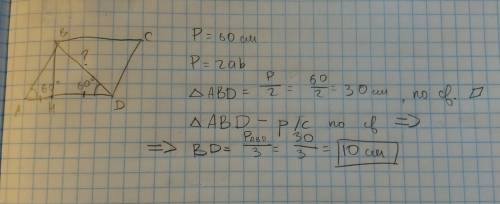 B C
?
60° 60°
A H D
P = 60 см
P = 2ab
△ABD = P/2 = 60/2 = 30 см, по св. ▱
△ABD - р/с по св ⇒
⇒ BD = P_ABD/3 = 30/3 = 10 см